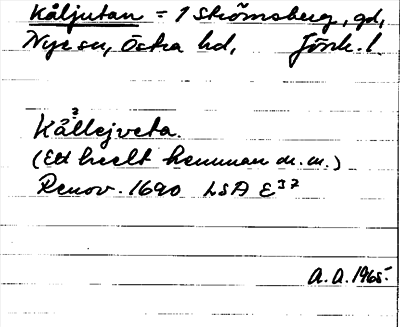 Kåljutan = 1 Strömsberg, gd,
Nye sn, Östra hd, Jönk. l.
Kållejveta.
(Ett heelt hemman m.m.)
Renov. 1690 LSA E37
A.A. 1965.